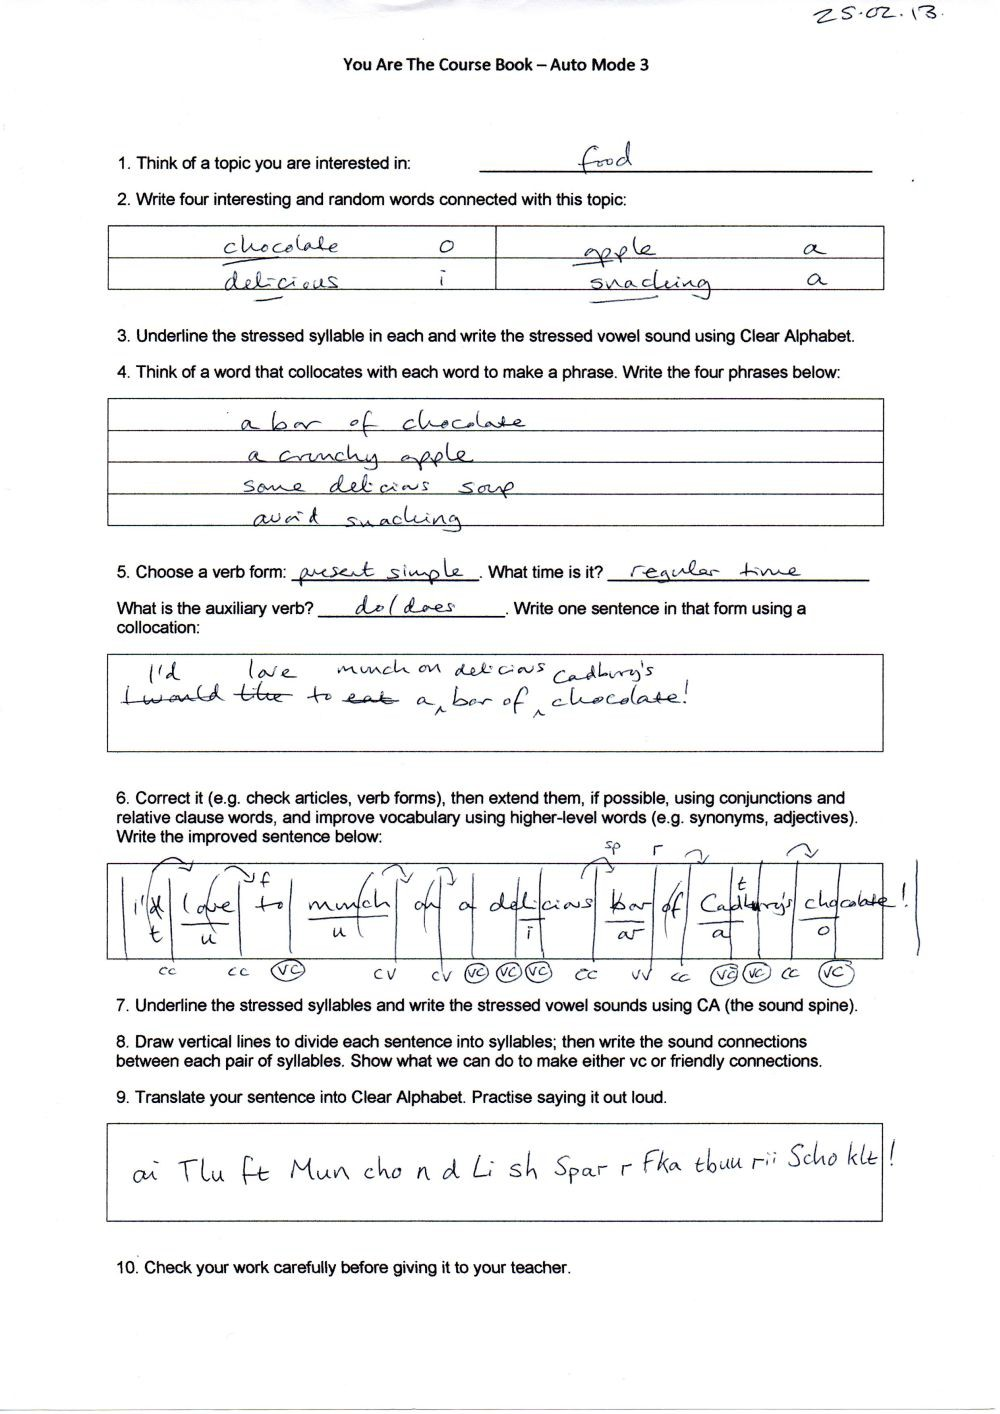 25.02.13.
You Are The Course Book – Auto Mode 3
1. Think of a topic you are interested in: food
2. Write four interesting and random words connected with this topic:
chocolate o apple a
delicious i snacking a
3. Underline the stressed syllable in each and write the stressed vowel sound using Clear Alphabet.
4. Think of a word that collocates with each word to make a phrase. Write the four phrases below:
a bar of chocolate
a crunchy apple
some delicious soup
avoid snacking
5. Choose a verb form: present simple. What time is it? regular time
What is the auxiliary verb? do/does. Write one sentence in that form using a
collocation:
I'd love munch on delicious Cadbury's
I would like to eat a bar of chocolate!
6. Correct it (e.g. check articles, verb forms), then extend them, if possible, using conjunctions and
relative clause words, and improve vocabulary using higher-level words (e.g. synonyms, adjectives).
Write the improved sentence below:
sp r
f t
I'd love to munch on a delicious bar of Cadbury's chocolate!
t u u i ar a o
cc cc vc cv cv vc vc vc cc vv cc vc vc cc vc
7. Underline the stressed syllables and write the stressed vowel sounds using CA (the sound spine).
8. Draw vertical lines to divide each sentence into syllables; then write the sound connections
between each pair of syllables. Show what we can do to make either vc or friendly connections.
9. Translate your sentence into Clear Alphabet. Practise saying it out loud.
ai Tlu ft Mun cho n d Li sh Spar r Fka tbuu rii Scho klt!
10. Check your work carefully before giving it to your teacher.